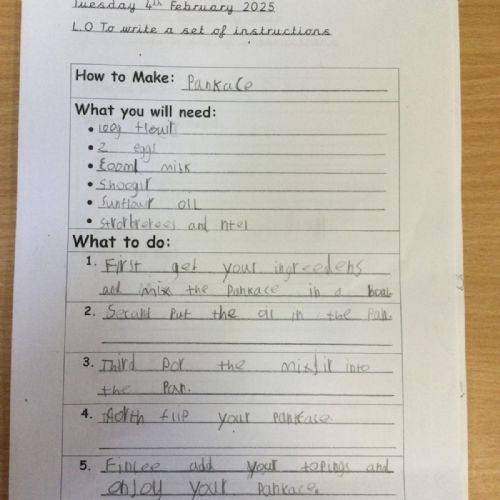 Tuesday 4th February 2025
L.O To write a set of instructions
How to Make: Pankace
What you will need:
• 100g flour
• 2 eggs
• 300ml milk
• Shoogir
• Sunflour oil
• and
What to do:
1. First get your ingreedens
and mix the Pankace in a boal
2. Secand Put the oil in the Pan.
3. Third Por the mixfir into
the Pan.
4. flip your Pankace.
5. Finlee add your topings and
enjoy your Pankace.